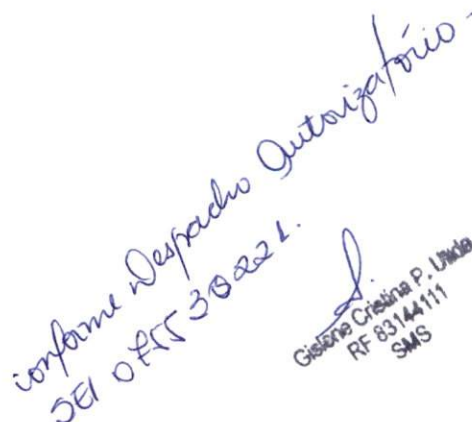 conforme Despacho Autorizatório -
SEI 075530221.
Cristina P.
RF 83144111
SMS